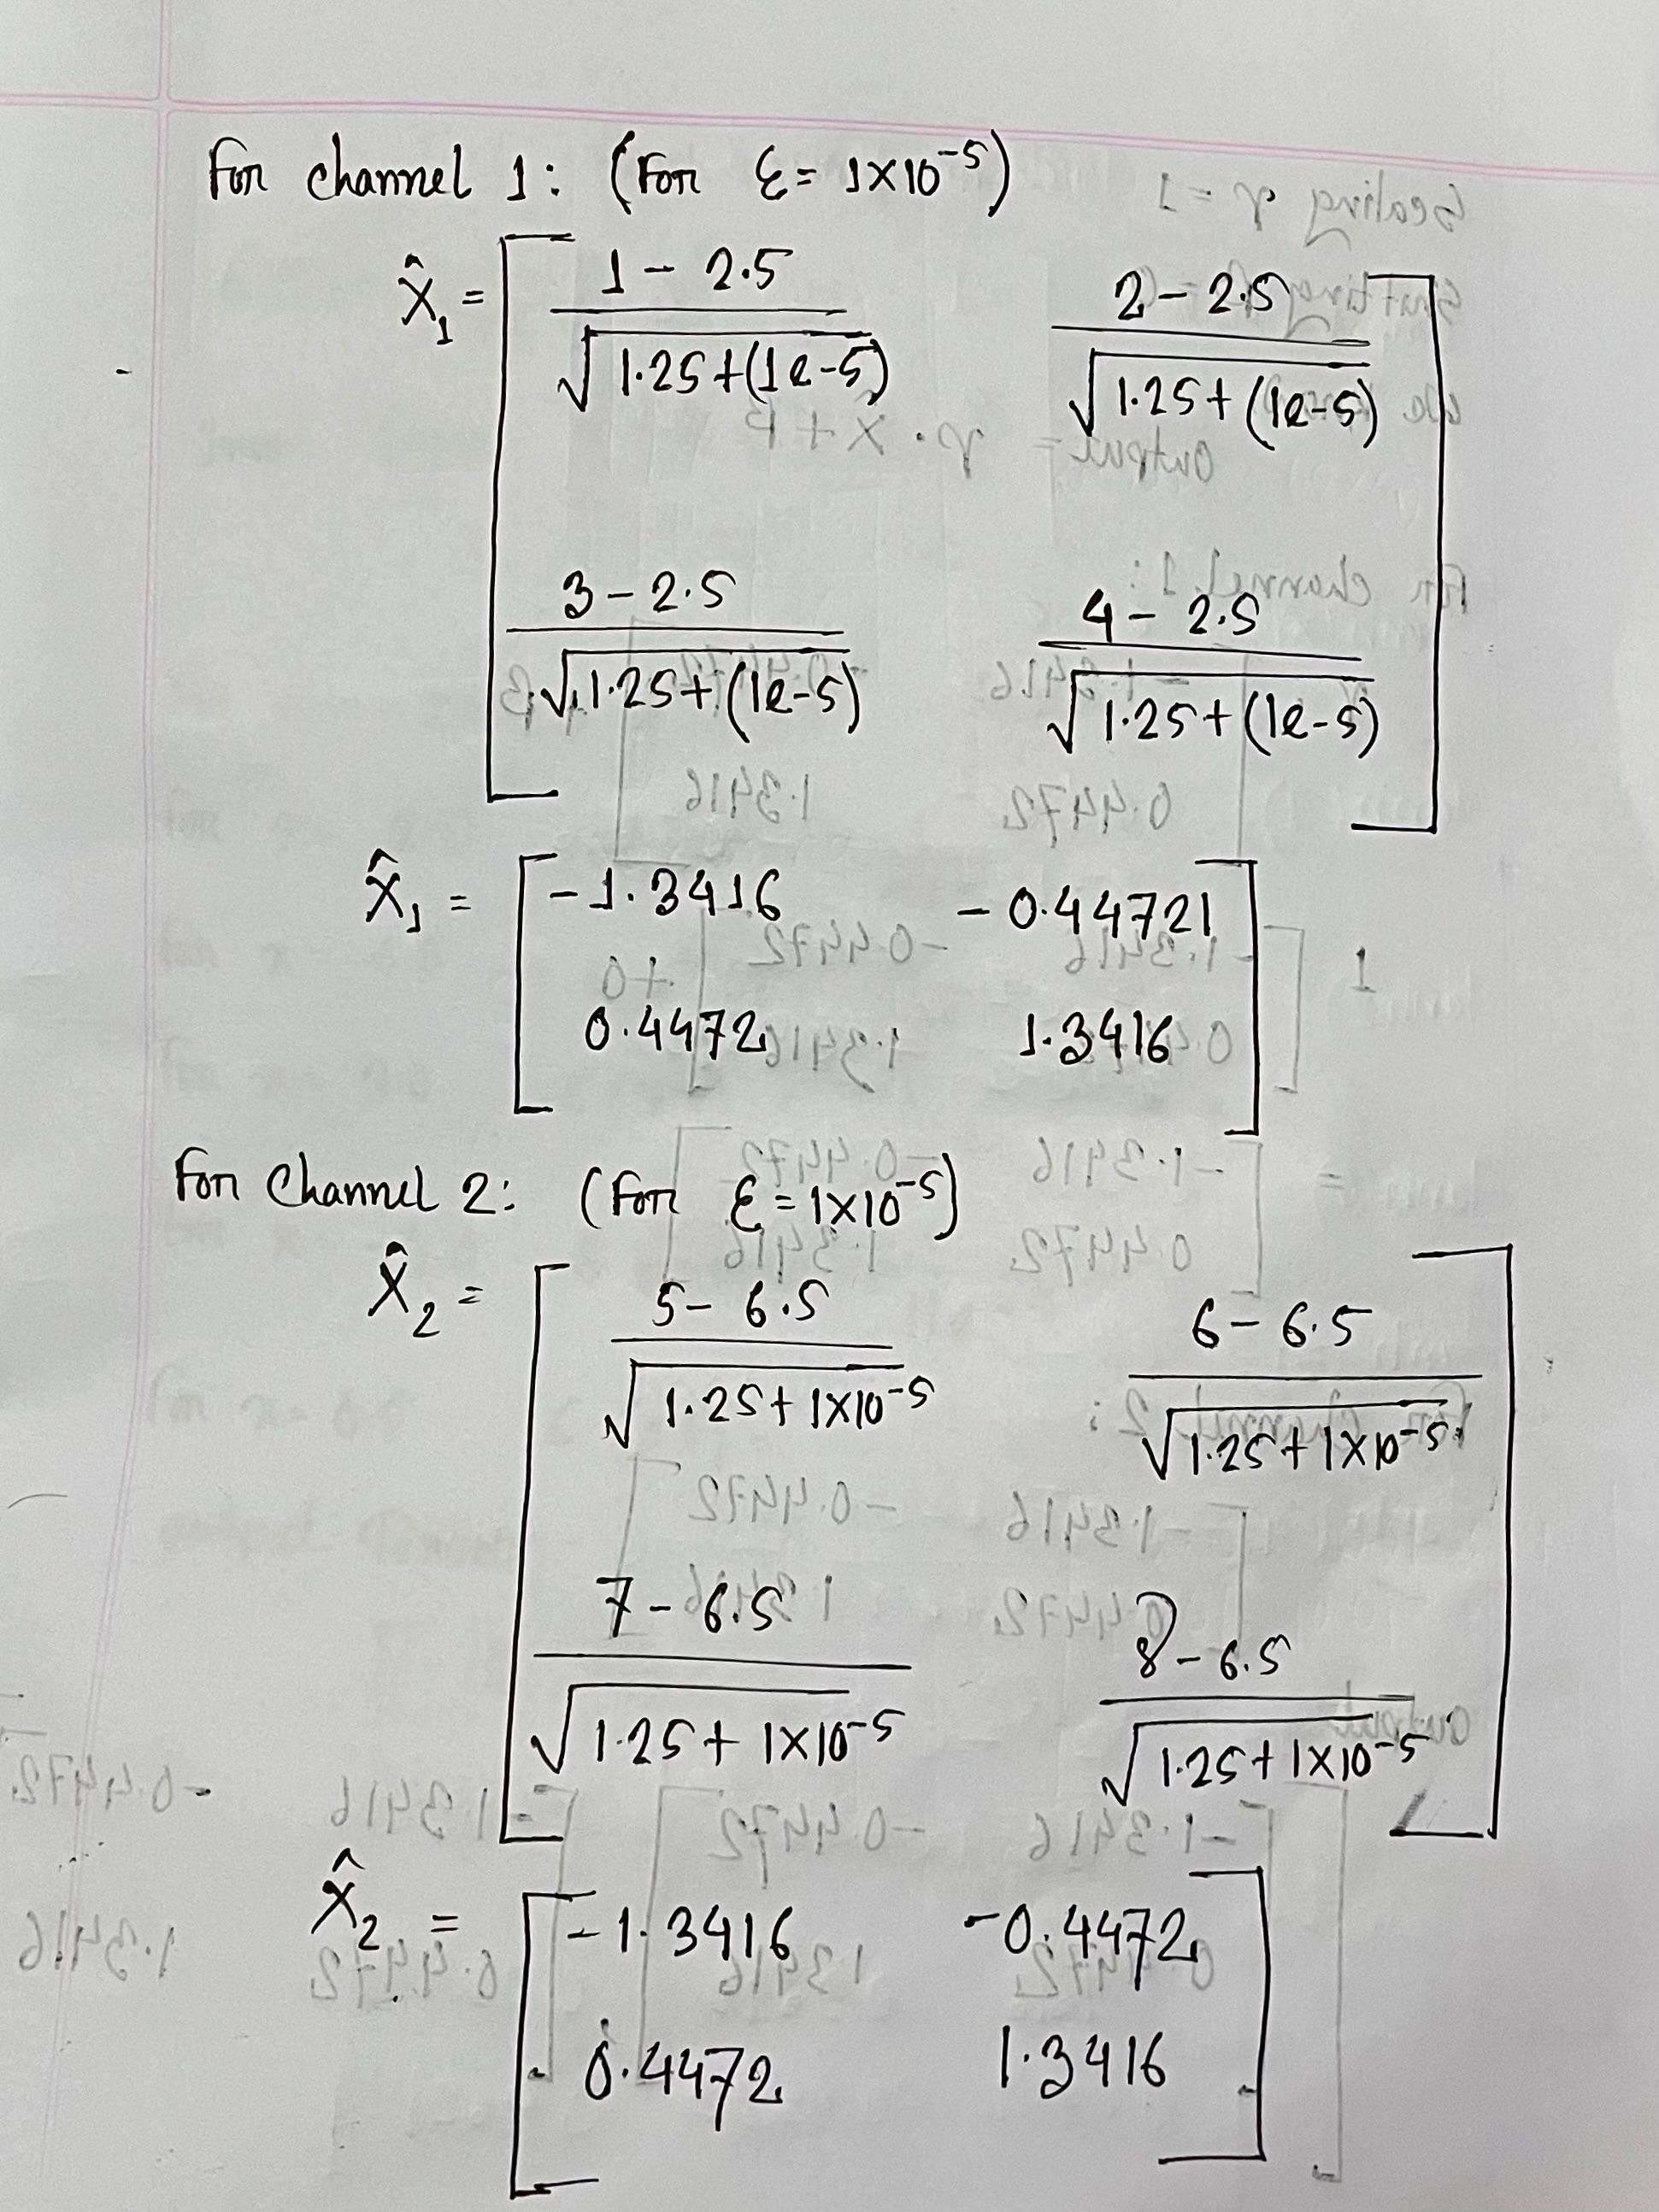 For channel 1: (For ε = 1×10⁻⁵)
X̂₁ = [ (1 - 2.5) / √(1.25+(1e-5))   (2 - 2.5) / √(1.25+(1e-5))
(3 - 2.5) / √(1.25+(1e-5))   (4 - 2.5) / √(1.25+(1e-5)) ]
X̂₁ = [ -1.3416   -0.44721
0.4472   1.3416 ]
For Channel 2: (For ε = 1×10⁻⁵)
X̂₂ = [ (5 - 6.5) / √(1.25+1×10⁻⁵)   (6 - 6.5) / √(1.25+1×10⁻⁵)
(7 - 6.5) / √(1.25+1×10⁻⁵)   (8 - 6.5) / √(1.25+1×10⁻⁵) ]
X̂₂ = [ -1.3416   -0.4472
0.4472   1.3416 ]